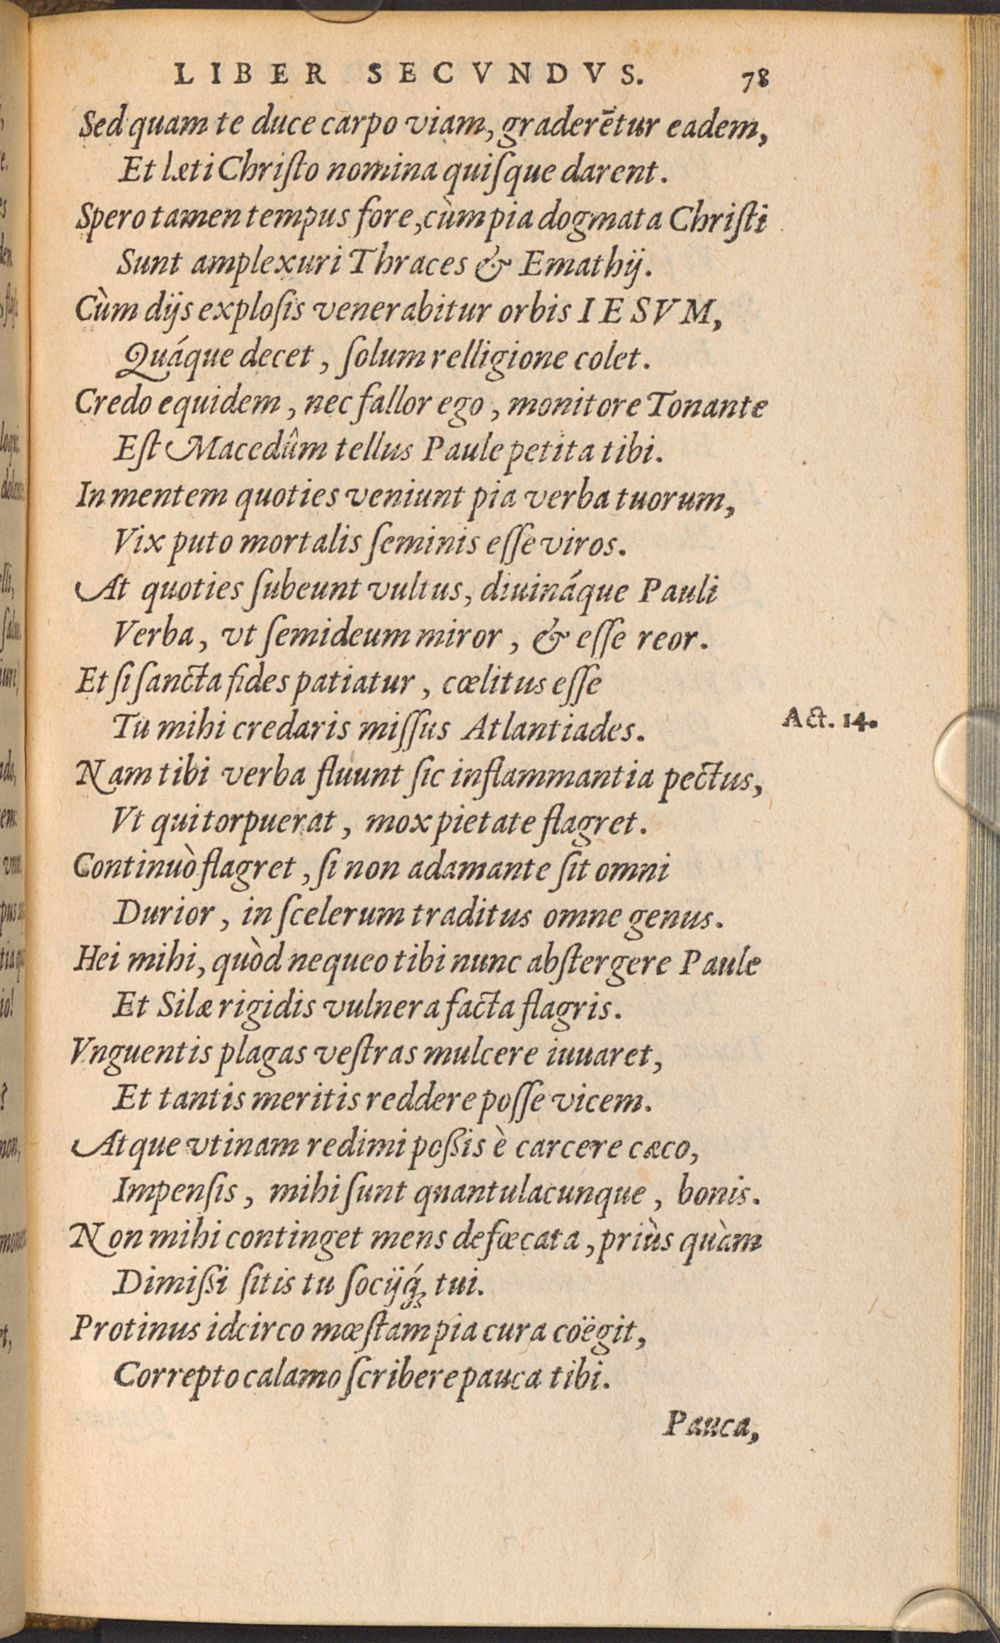 LIBER SECVNDVS. 78
Sed quam te duce carpo viam, graderētur eadem,
Et læti Chriſto nomina quiſque darent.
Spero tamen tempus fore, cùm pia dogmata Chriſti
Sunt amplexuri Thraces & Emathij.
Cùm dijs exploſis venerabitur orbis IESVM,
Quáque decet, ſolum relligione colet.
Credo equidem, nec fallor ego, monitore Tonante
Eſt Macedûm tellus Paule petita tibi.
In mentem quoties veniunt pia verba tuorum,
Vix puto mortalis ſeminis eſſe viros.
At quoties ſubeunt vultus, diuináque Pauli
Verba, vt ſemideum miror, & eſſe reor.
Et ſi ſancta fides patiatur, cœlitus eſſe
Tu mihi credaris miſſus Atlantiades.
Act. 14.
Nam tibi verba fluunt ſic inflammantia pectus,
Vt qui torpuerat, mox pietate flagret.
Continuò flagret, ſi non adamante ſit omni
Durior, in ſcelerum traditus omne genus.
Hei mihi, quòd nequeo tibi nunc abſtergere Paule
Et Silæ rigidis vulnera facta flagris.
Vnguentis plagas veſtras mulcere iuuaret,
Et tantis meritis reddere poſſe vicem.
Atque vtinam redimi poßis è carcere cæco,
Impenſis, mihi ſunt quantulacunque, bonis.
Non mihi continget mens defœcata, priùs quàm
Dimißi ſitis tu ſocijq́; tui.
Protinus idcirco mœſtam pia cura coëgit,
Correpto calamo ſcribere pauca tibi.
Pauca,